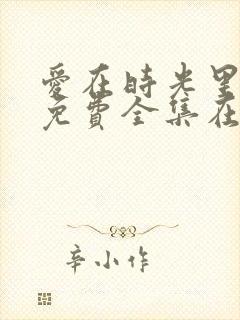 爱在時光里
免費全集在
辛小作